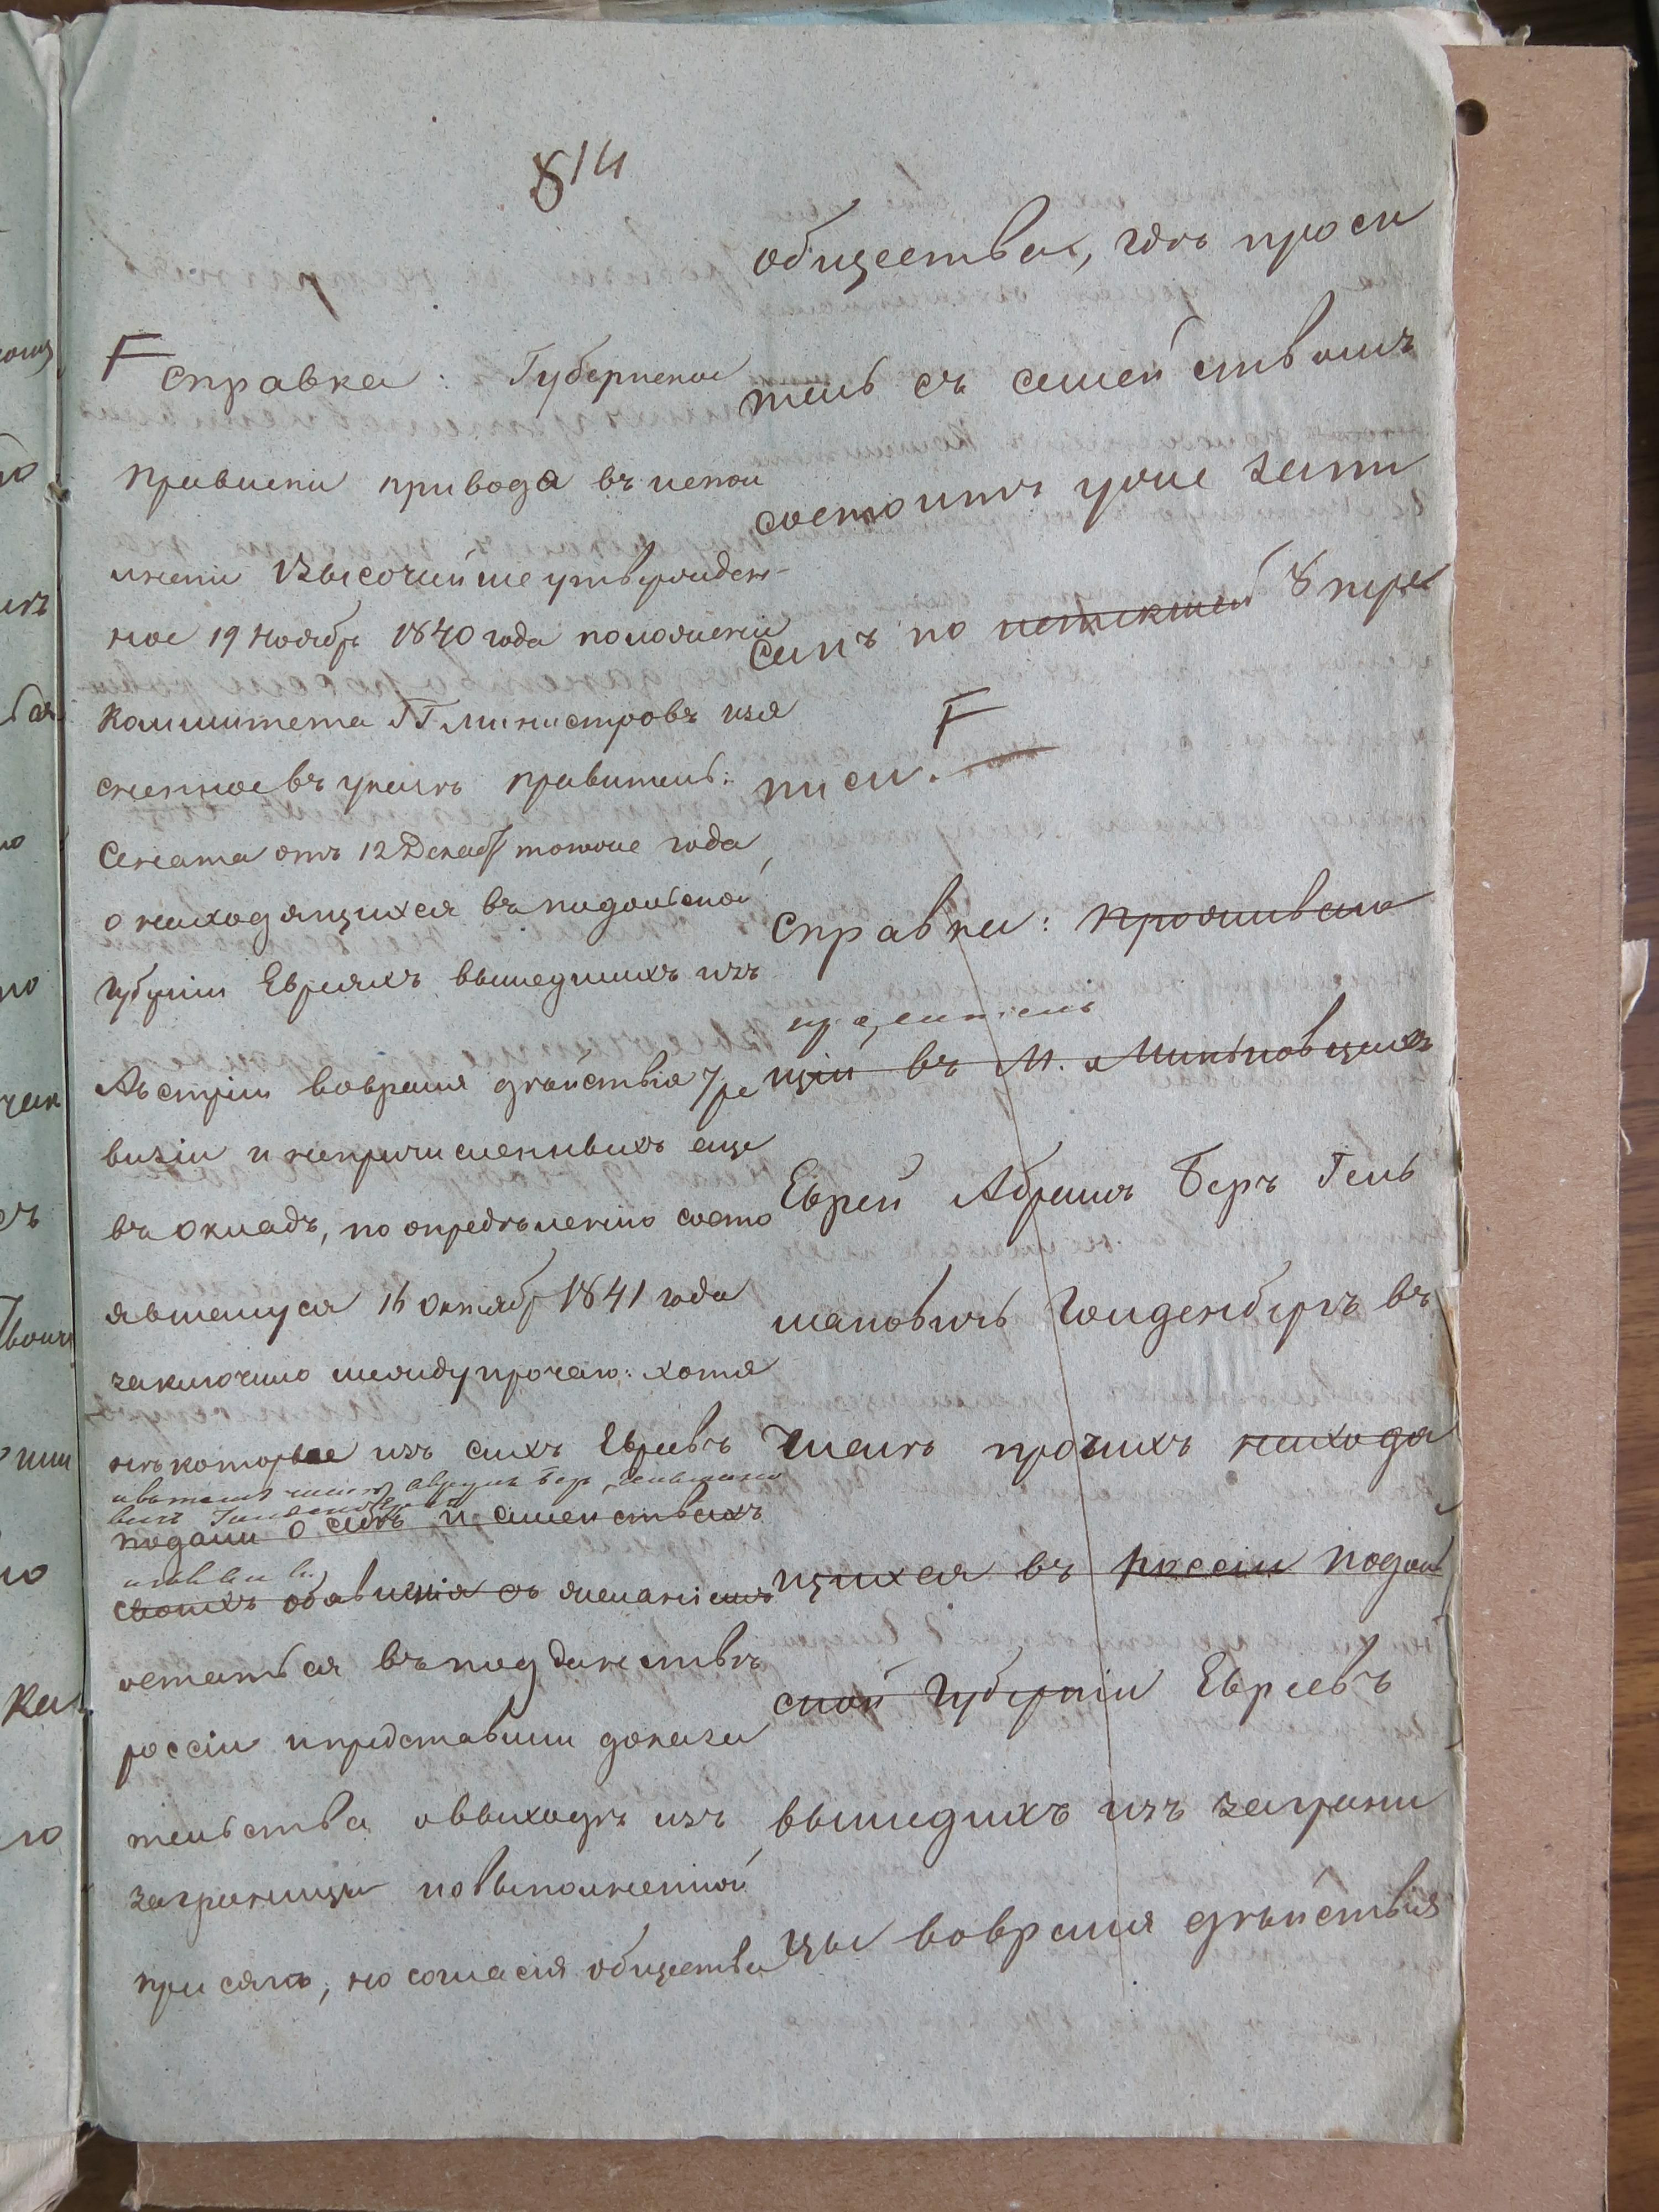 814
F справка: Губернское
Правленіе приводя въ испол
неніе Высочайше утвержден-
ное 19 Ноябр 1840 года положеніе
Коммитета ГГ Министровъ изъя
сненное въ указѣ Правитель:
Сената отъ 12 Декаб тогоже года,
о находящихся въ подольской
губерніи Евреяхъ вышедшихъ изъ
Австріи вовремя дѣйствія 7 ре
визіи и непричисленныхъ еще
въ окладъ, по опредѣленію состо
явшемуся 16 октябр 1841 года
заключило между прочаго: хотя
нѣкоторые изъ сихъ Евреевъ
подали о себѣ и семействахъ
своихъ объявленія съ желаніемъ
остаться въ подданствѣ
россіи и представили доказа
тельства о выходѣ изъ
заграницы и о выполненной
присягѣ, но согласія общества
общества, гдѣ проси
тель съ семействомъ
состоитъ уже запи
санъ по истекшей 8 пере
писи. F
справка: проживаю
проситель
щій въ М. Миньковцахъ
Еврей Абрамъ Беръ Гель
мановичъ Гольденбергъ въ
числѣ прочихъ находя
щихся въ россіи подоль
ской губерніи Евреевъ
вышедшихъ изъ заграни
цы вовремя дѣйствія